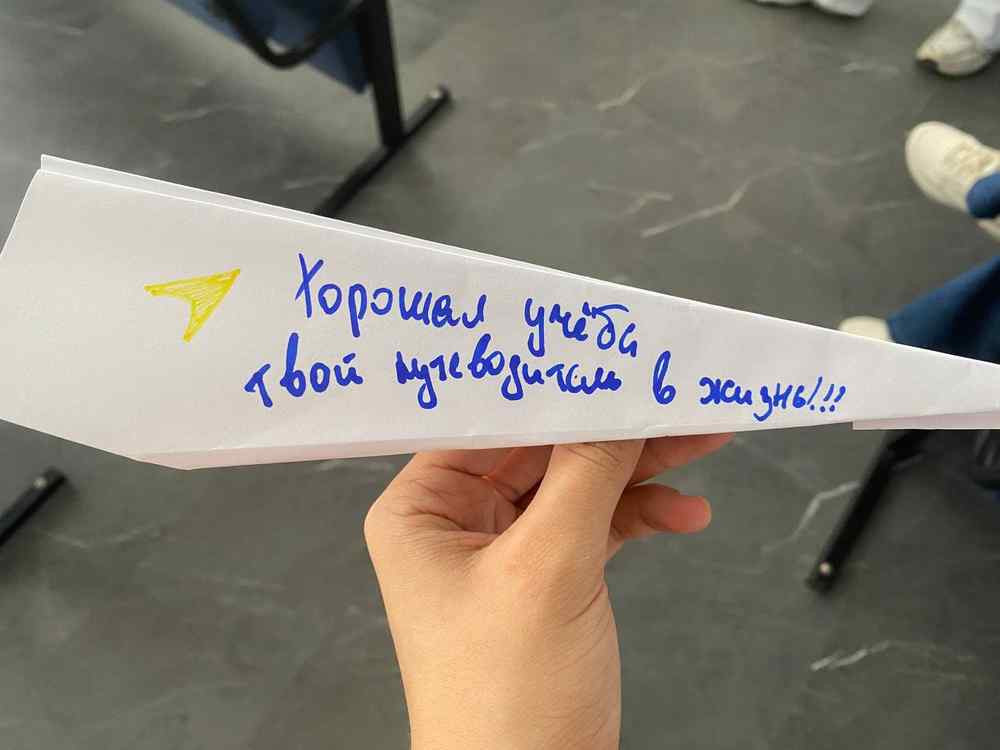 Хорошая учёба
твой путеводитель в жизнь!!!